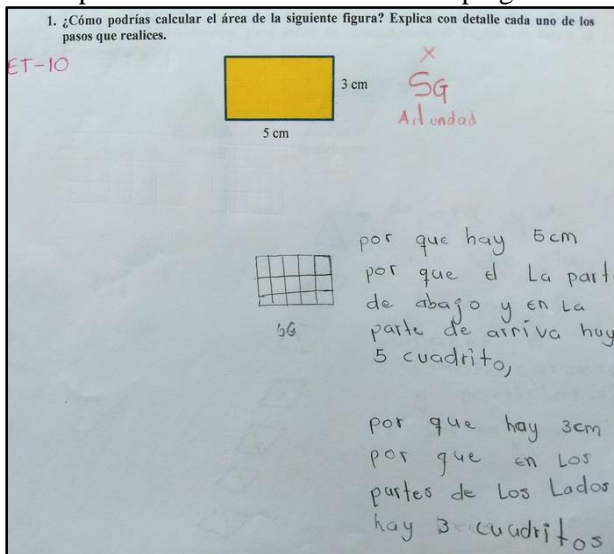 1. ¿Cómo podrías calcular el área de la siguiente figura? Explica con detalle cada uno de los
pasos que realices.
ET-10
3 cm
5 cm
x
SG
undad
por que hay 5cm
por que el La part
de abajo y en La
parte de arriva hay
5 cuadrito,
por que hay 3cm
por que en Los
partes de Los Lados
hay 3 cuadritos